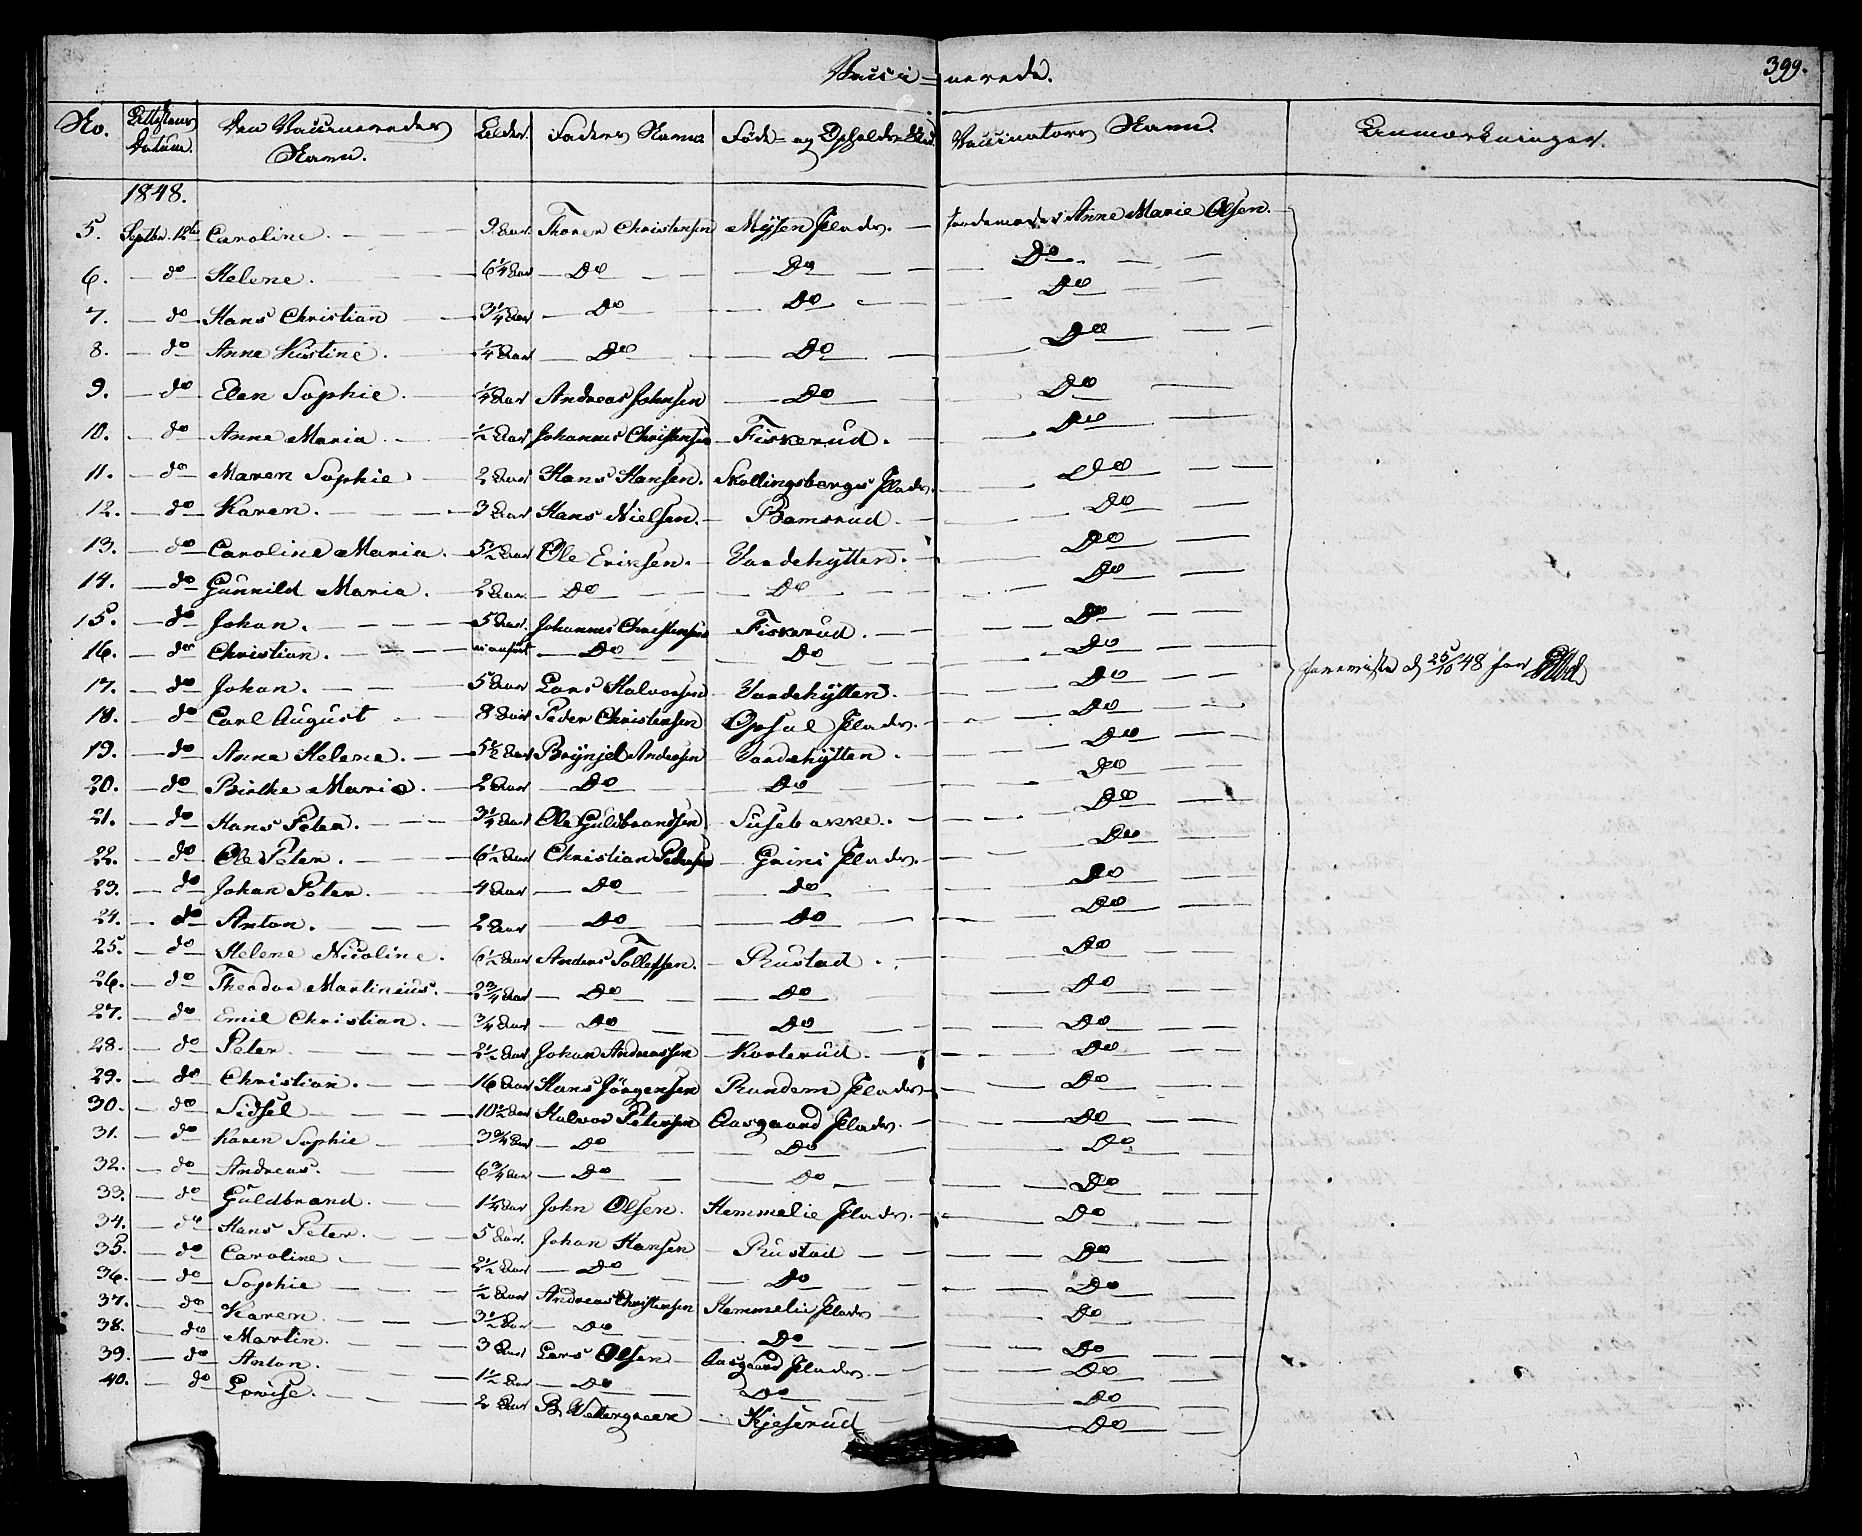 Vacci=nerede. 399.
No. | Attestens Datum. | Den Vaccineredes Navn. | Alder. | Faders Navn | Føde- og Opholds-Sted | Vaccinators Navn. | Anmærkninger.
1848.
5. Septbr. 12te Caroline. 9 Aar Thorer Christensen Mysen Plads. Jordemoder Anne Marie Olsen.
6. do Helene. 6 1/4 Aar Do Do Do
7. do Hans Christian 3 1/4 Aar Do Do Do
8. do Anne Kirstine. 1/4 Aar Do Do Do
9. do Elen Sophie. 1/4 Aar Andreas Johnsen Do Do
10. do Anne Maria. 1/2 Aar Johannes Christensen Fiskerud. Do
11. do Maren Sophie 2 Aar Hans Hansen. Skollingsbergs Plads. Do
12. do Karen. 3 Aar Hans Nielsen. Bamsrud. Do
13. do Caroline Maria. 5 1/2 Aar Ole Eriksen. Vardehytten. Do
14. do Gunnild Maria. 2 Aar Do Do Do
15. do Johan. 5 Aar. Johannes Christensen Fiskerud. Do
16. do Christian. Do Do Do
17. do Johan. 5 Aar Lars Halvorsen Vardehytten. Do
18. do Carl August 8 Aar Peder Christensen Opsal Plads. Do
19. do Anne Helene. 5 1/2 Aar Brynjel Andersen Vardehytten. Do
20. do Birthe Maria. 2 Aar Do Do Do
21. do Hans Peter. 3 1/4 Aar Ole Guldbrandsen Susebakke. Do
22. do Ole Peter. 6 1/2 Aar Christian Pedersen Grini Plads. Do
23. do Johan Peter. 4 Aar Do Do Do
24. do Anton. 2 Aar Do Do Do
25. do Helene Nicoline. 6 1/2 Aar Anders Tollefsen. Rustad. Do
26. do Theodor Martinius. 2 3/4 Aar Do Do Do
27. do Emil Christian. 3/4 Aar Do Do Do
28. do Peter. 2 1/2 Aar Johan Andreassen Korterud. Do
29. do Christian. 16 Aar Hans Jørgensen Randem Plads Do
30. do Sidsel 10 1/2 Aar Halvor Petersen Aasgaard Plads. Do
31. do Karen Sophie 3 3/4 Aar Do Do Do
32. do Andreas. 6 3/4 Aar Do Do Do
33. do Guldbrand. 1 1/4 Aar John Olsen. Hemmelie Plads. Do
34. do Hans Peter. 5 Aar. Johan Hansen Rustad Do
35. do Caroline 2 1/2 Aar Do Do Do
36. do Sophie 1/2 Aar Andreas Christensen Hemmelie Plads Do
37. do Karen. 3 1/2 Aar Do Do Do
38. do Martin. 3 Aar Lars Olsen Aasgaard Plads. Do
39. do Anton. 1 1/2 Aar Do Do Do
40. do Lovise. 2 Aar B. Vettergreen Kjeserud Do
foreviste d 25/10 48 for